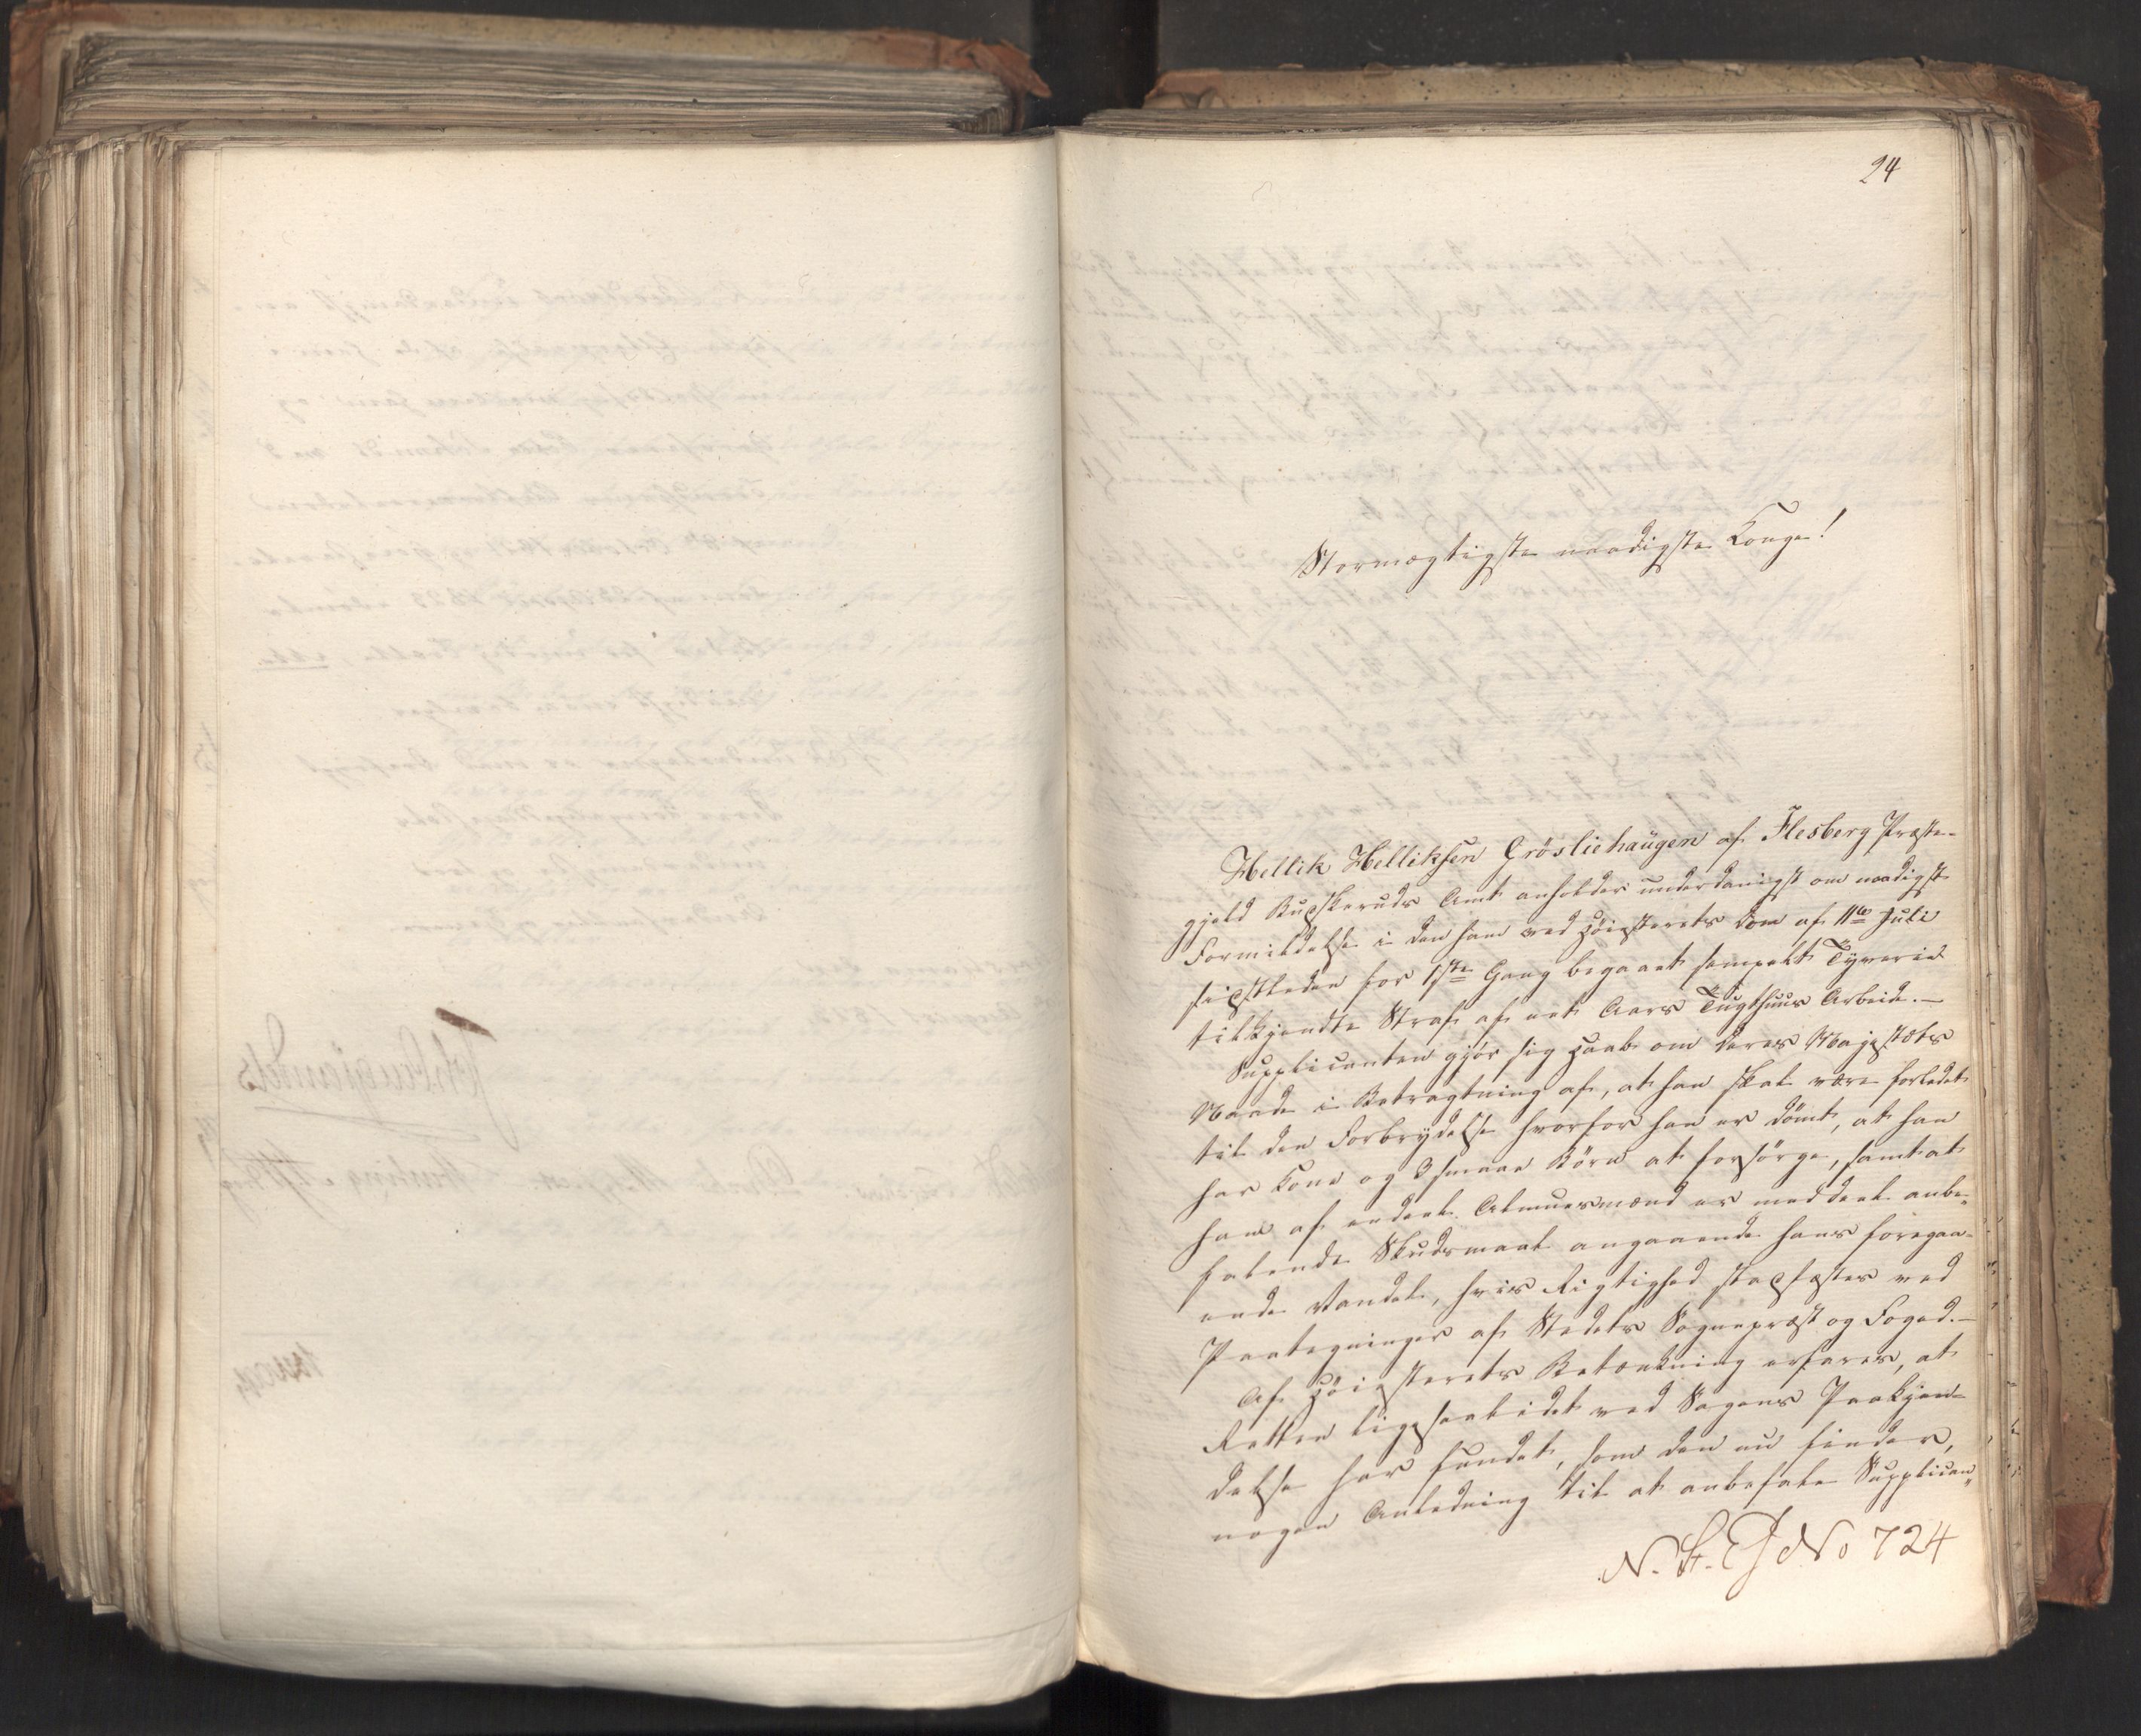 24
Stormægtigste naadigste Konge!
Hellik Helliksen Grösliehaugen af Flesberg Præste-
gjeld Buskeruds Amt anholder underdanigst om naadigst
Formildelse i den ham ved Höiesterets Dom af 11te Juli
sidstleden for 1ste Gang begaaet simpelt Tyverie
tilkjendte Straf af eet Aars Tugthuus Arbeide.-
Supplicanten gjör sig Haab om Deres Majestæts
Naade i Betragtning af, at han skal være forledet
til den Forbrydelse hvorfor han er dömt, at han
har Kone og 3 smaae Börn at forsörge, samt at
ham af endeel Almuesmænd er meddeelt anbe-
falende Skudsmaal angaaende hans foregaa-
ende Vandel, hvis Rigtighed stadfæstes ved
Paategninger af Stedets Sognepræst og Foged.-
Af Höiesterets Betænkning erfares, at
Retten ligesaalidet ved Sagens Paakjen-
delse har fundet, som den nu finder,
nogen Anledning til at anbefale Supplican-
N. S. E J No 724